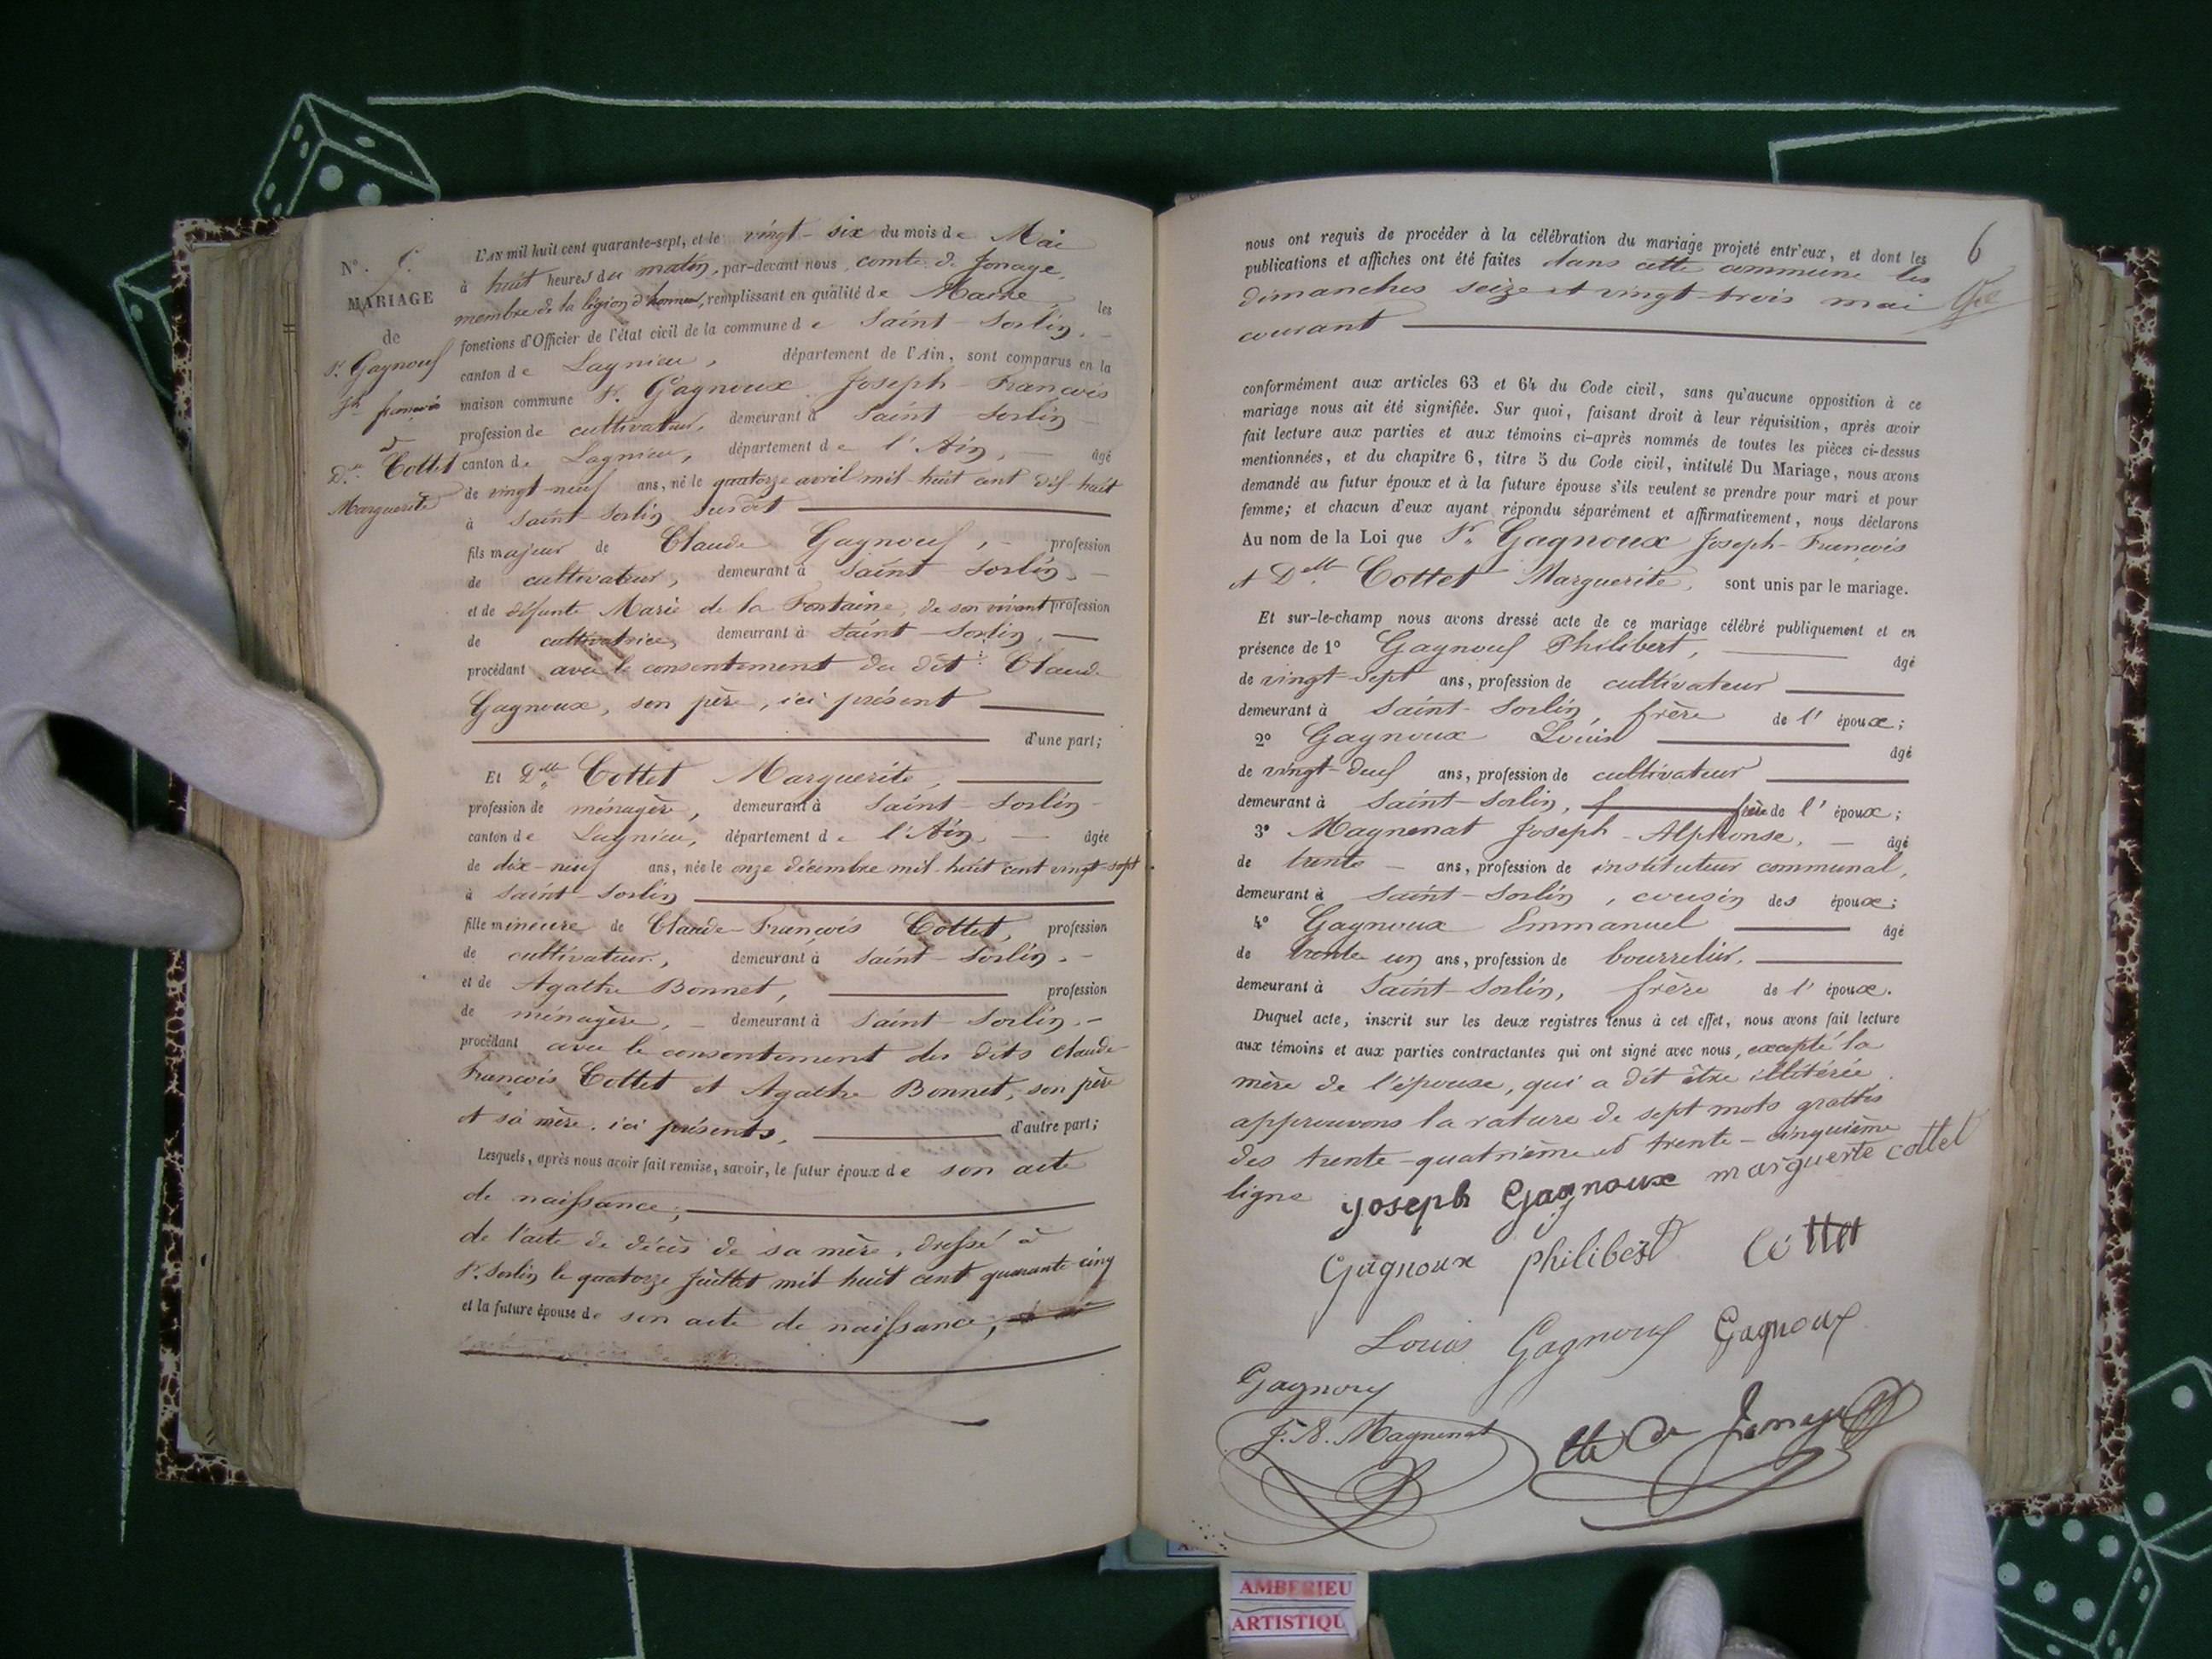 N°.
MARIAGE
de
Sr. Gagnoux
Jh françois
&
Dlle Cottet
Marguerite
L'AN mil huit cent quarante-sept, et le vingt-six du mois de Mai
à huit heures du matin, par-devant nous, comte de Jonage,
membre de la légion d'honneur, remplissant en qualité de Maire les
fonctions d'Officier de l'état civil de la commune de Saint-Sorlin,
canton de Lagnieu, département de l'Ain, sont comparus en la
maison commune Sr. Gagnoux Joseph-François
profession de cultivateur, demeurant à Saint-Sorlin
canton de Lagnieu, département de l'Ain, âgé
de vingt-neuf ans, né le quatorze avril mil huit cent dix-huit
à Saint-Sorlin susdit
fils majeur de Claude Gagnoux, profession
de cultivateur, demeurant à Saint-Sorlin,
et de défunte Marie de la Fontaine, de son vivant profession
de cultivatrice, demeurant à Saint-Sorlin,
procédant avec le consentement du dit Claude
Gagnoux, son père, ici présent
d'une part;
Et Dlle Cottet Marguerite,
profession de ménagère, demeurant à Saint-Sorlin
canton de Lagnieu, département de l'Ain, âgée
de dix-neuf ans, née le onze décembre mil huit cent vingt-sept
à Saint-Sorlin
fille mineure de Claude-François Cottet, profession
de cultivateur, demeurant à Saint-Sorlin,
et de Agathe Bonnet, profession
de ménagère, demeurant à Saint-Sorlin,
procédant avec le consentement des dits Claude
François Cottet et Agathe Bonnet, son père
et sa mère, ici présents, d'autre part;
Lesquels, après nous avoir fait remise, savoir, le futur époux de son acte
de naissance;
de l'acte de décès de sa mère, dressé à
St. Sorlin le quatorze Juillet mil huit cent quarante-cinq
et la future épouse de son acte de naissance;
6
nous ont requis de procéder à la célébration du mariage projeté entr'eux, et dont les
publications et affiches ont été faites dans cette commune les
dimanches seize et vingt-trois mai
courant
conformément aux articles 63 et 64 du Code civil, sans qu'aucune opposition à ce
mariage nous ait été signifiée. Sur quoi, faisant droit à leur réquisition, après avoir
fait lecture aux parties et aux témoins ci-après nommés de toutes les pièces ci-dessus
mentionnées, et du chapitre 6, titre 5 du Code civil, intitulé Du Mariage, nous avons
demandé au futur époux et à la future épouse s'ils veulent se prendre pour mari et pour
femme; et chacun d'eux ayant répondu séparément et affirmativement, nous déclarons
Au nom de la Loi que Sr. Gagnoux Joseph-François
et Dlle Cottet Marguerite, sont unis par le mariage.
Et sur-le-champ nous avons dressé acte de ce mariage célébré publiquement et en
présence de 1° Gagnoux Philibert, âgé
de vingt-sept ans, profession de cultivateur
demeurant à Saint-Sorlin, frère de l'époux;
2° Gagnoux Louis âgé
de vingt-deux ans, profession de cultivateur
demeurant à Saint-Sorlin, f frère de l'époux;
3° Magnenat Joseph-Alphonse, âgé
de trente ans, profession de instituteur communal,
demeurant à Saint-Sorlin, cousin des époux;
4° Gagnoux Emmanuel âgé
de trente un ans, profession de bourrelier,
demeurant à Saint-Sorlin, frère de l'époux.
Duquel acte, inscrit sur les deux registres tenus à cet effet, nous avons fait lecture
aux témoins et aux parties contractantes qui ont signé avec nous, excepté la
mère de l'épouse, qui a dit être illitérée.
approuvons la rature de sept mots grattés
des trente-quatrième et trente-cinquième
ligne Joseph Gagnoux marguerite cottet
Gagnoux philibert Cottet
Louis Gagnoux Gagnoux
Gagnoux
J. A. Magnenat Cte de Jonage
AMBERIEU
ARTISTIQU